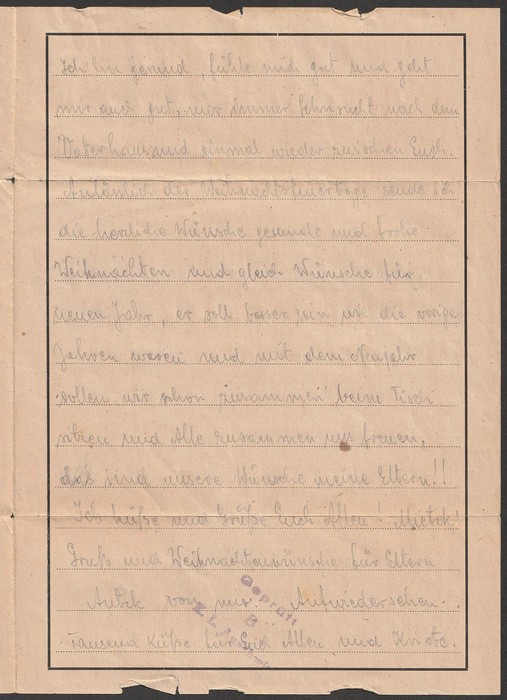 Ich bin gesund, fühle mich gut und geht
mir auch gut, nur immer Sehnsucht nach dem
Vaterhaus und einmal wieder zwischen Euch.
Anlässlich der Weihnachtsfeiertage sende ich
die herzliche Wünsche gesunde und frohe
Weihnachten und gleich Wünsche für
neuen Jahr, er soll besser sein wie die vorige
Jahren waren und mit dem Neujahr
sollen wir schon zusammen beim Tisch
sitzen und Alle zusammen uns freuen,
das sind unsere Wünsche meine Eltern!!
Ich küße und Grüße Euch Allen! Mietek!
Gruß und Weihnachtswünsche für Eltern
Antek von mir. Aufwiedersehen.
Tausend Küße für Euch Allen und
Geprüft
8
K.L.